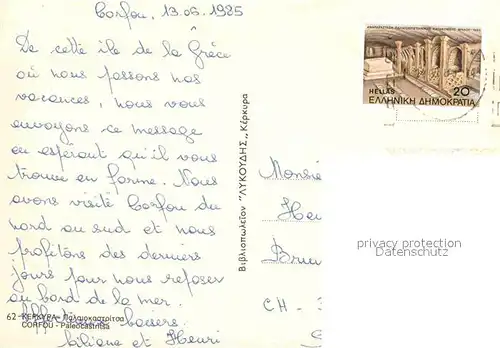 Corfou, 13.06.1985
De cette île de la Grèce
où nous passons nos
vacances, nous vous
envoyons ce message
en espérant qu'il vous
trouve en forme. Nous
avons visité Corfou du
nord au sud et nous
profitons des derniers
jours pour nous reposer
au bord de la mer.
Affectueux baisers.
Liliane et Henri
62 - ΚΕΡΚΥΡΑ - Παλαιοκαστρίτσα
CORFOU - Paleocastritsa
Βιβλιοπωλεῖον "ΛΥΚΟΥΔΗΣ" Κέρκυρα
HELLAS 20
ΕΛΛΗΝΙΚΗ ΔΗΜΟΚΡΑΤΙΑ
Monsie
Hen
Brun
CH - 3
privacy protection
Datenschutz